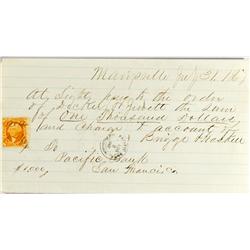 Marysville July 31, 186
At Sight pay to the order
of Decker & Jewett the sum
of One Thousand Dollars
and charge to account of
To
Pacific Bank
San Francisco
$1000